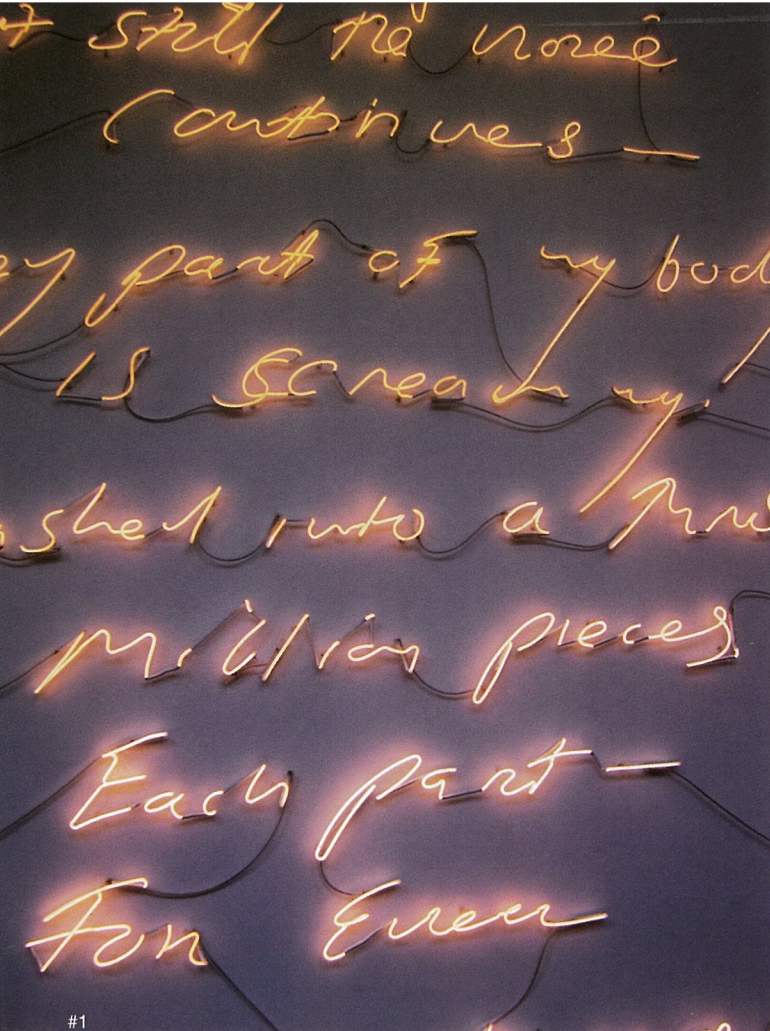 still The noise
Continues —
part of my body
is Screaming.
shed into a
Million pieces
Each part —
For Ever
#1